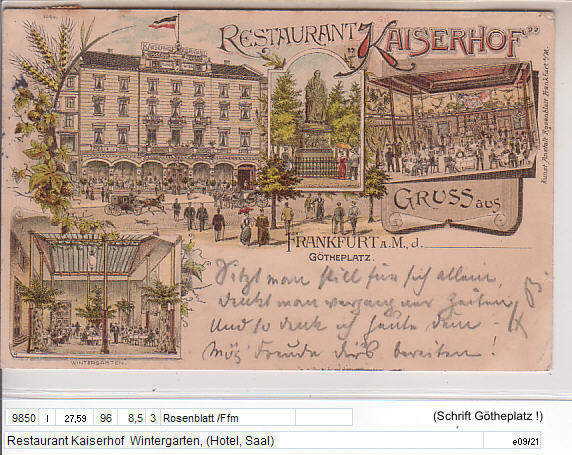 RESTAURANT „KAISERHOF"
GRUSS aus
FRANKFURT a. M., d.
GÖTHEPLATZ.
Sitzt man still für sich allein,
denkt man vergangner Zeiten,
Und so denk ich heute dein –
Mög' Freude dir's bereiten!
WINTERGARTEN.
9850 I 27,59 96 8,5 3 Rosenblatt /Ffm
(Schrift Götheplatz !)
Restaurant Kaiserhof Wintergarten, (Hotel, Saal)
e09/21